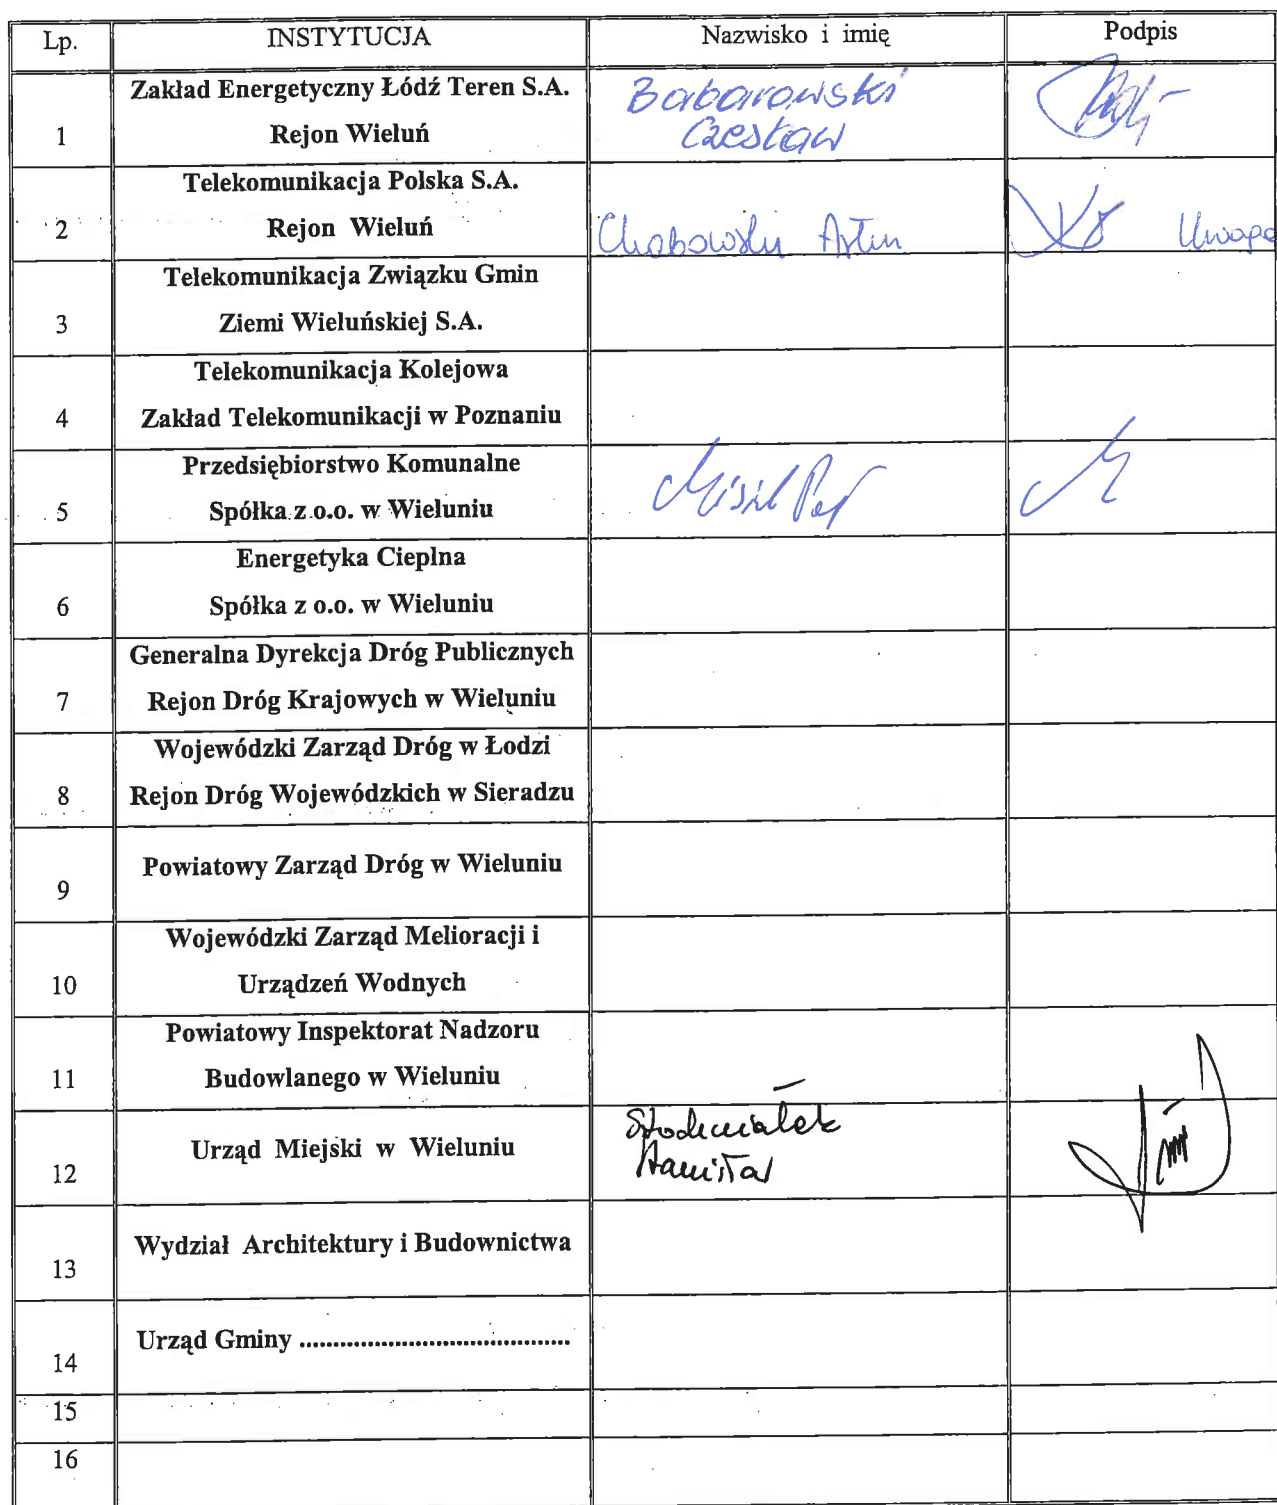 Lp. INSTYTUCJA Nazwisko i imię Podpis
Zakład Energetyczny Łódź Teren S.A. Babarowski
1 Rejon Wieluń Czesław
Telekomunikacja Polska S.A.
2 Rejon Wieluń Chabowski Artur
Telekomunikacja Związku Gmin
3 Ziemi Wieluńskiej S.A.
Telekomunikacja Kolejowa
4 Zakład Telekomunikacji w Poznaniu
Przedsiębiorstwo Komunalne
5 Spółka z.o.o. w Wieluniu
Energetyka Cieplna
6 Spółka z o.o. w Wieluniu
Generalna Dyrekcja Dróg Publicznych
7 Rejon Dróg Krajowych w Wieluniu
Wojewódzki Zarząd Dróg w Łodzi
8 Rejon Dróg Wojewódzkich w Sieradzu
Powiatowy Zarząd Dróg w Wieluniu
9
Wojewódzki Zarząd Melioracji i
10 Urządzeń Wodnych
Powiatowy Inspektorat Nadzoru
11 Budowlanego w Wieluniu
Urząd Miejski w Wieluniu
12
Wydział Architektury i Budownictwa
13
Urząd Gminy ........................................
14
15
16